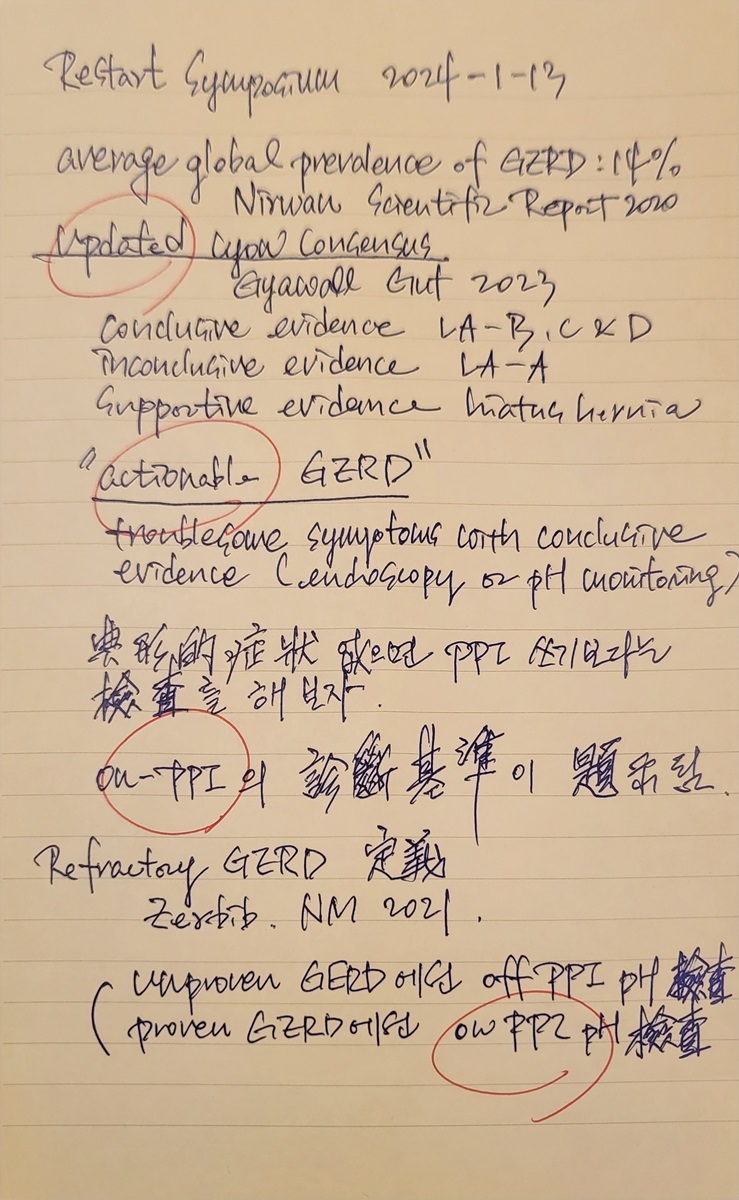 Restart Symposium 2024-1-13
average global prevalence of GERD : 14%
Nirwan Scientific Report 2020
Updated Lyon Consensus.
Gyawali Gut 2023
Conclusive evidence LA-B, C & D
inconclusive evidence LA-A
Supportive evidence hiatus hernia
"actionable GERD"
troublesome symptoms with conclusive
evidence (endoscopy or pH monitoring)
典形的 症狀 없으면 PPI 쓰기보다는
檢査를 해 보자.
on-PPI의 診斷基準이 題示됨.
Refractory GERD 定義
Zerbib. NM 2021.
( unproven GERD에선 off PPI pH 檢査
proven GERD에선 on PPI pH 檢査